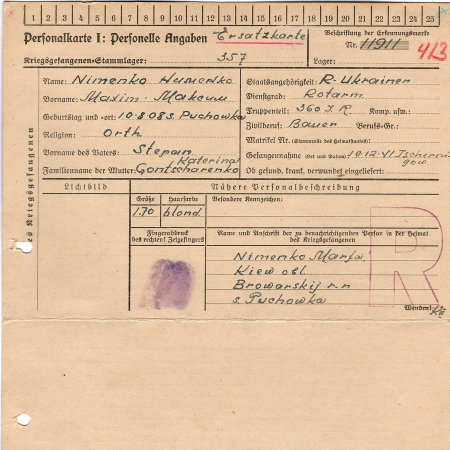 1 2 3 4 5 6 7 8 9 10 11 12 13 14 15 16 17 18 19 20 21 22 23 24 25
Personalkarte I: Personelle Angaben Ersatzkarte
Beschriftung der Erkennungsmarke
Nr. 11911 413
Kriegsgefangenen-Stammlager: 357
Lager:
des Kriegsgefangenen
Name: Nimenko Нименко
Vorname: Maxim Максим
Geburtstag und -ort: 10.8.08 s. Puchowka
Religion: Orth.
Vorname des Vaters: Stepan
Katerina
Familienname der Mutter: Gontscharenko
Staatsangehörigkeit: R. Ukrainer
Dienstgrad: Rotarm.
Truppenteil: 360 J.R. Komp. usw.:
Zivilberuf: Bauer Berufs-Gr.:
Matrikel Nr. (Stammrolle des Heimatstaates):
Gefangennahme (Ort und Datum): 19.12.41 Tscherni
gow
Ob gesund, krank, verwundet eingeliefert:
Lichtbild
Nähere Personalbeschreibung
Größe Haarfarbe Besondere Kennzeichen:
1.70 blond
Fingerabdruck
des rechten! Zeigefingers
Name und Anschrift der zu benachrichtigenden Person in der Heimat
des Kriegsgefangenen
Nimenko Marfa
Kiew obl.
Browarskij r-n
s. Puchowka
R
Wenden!